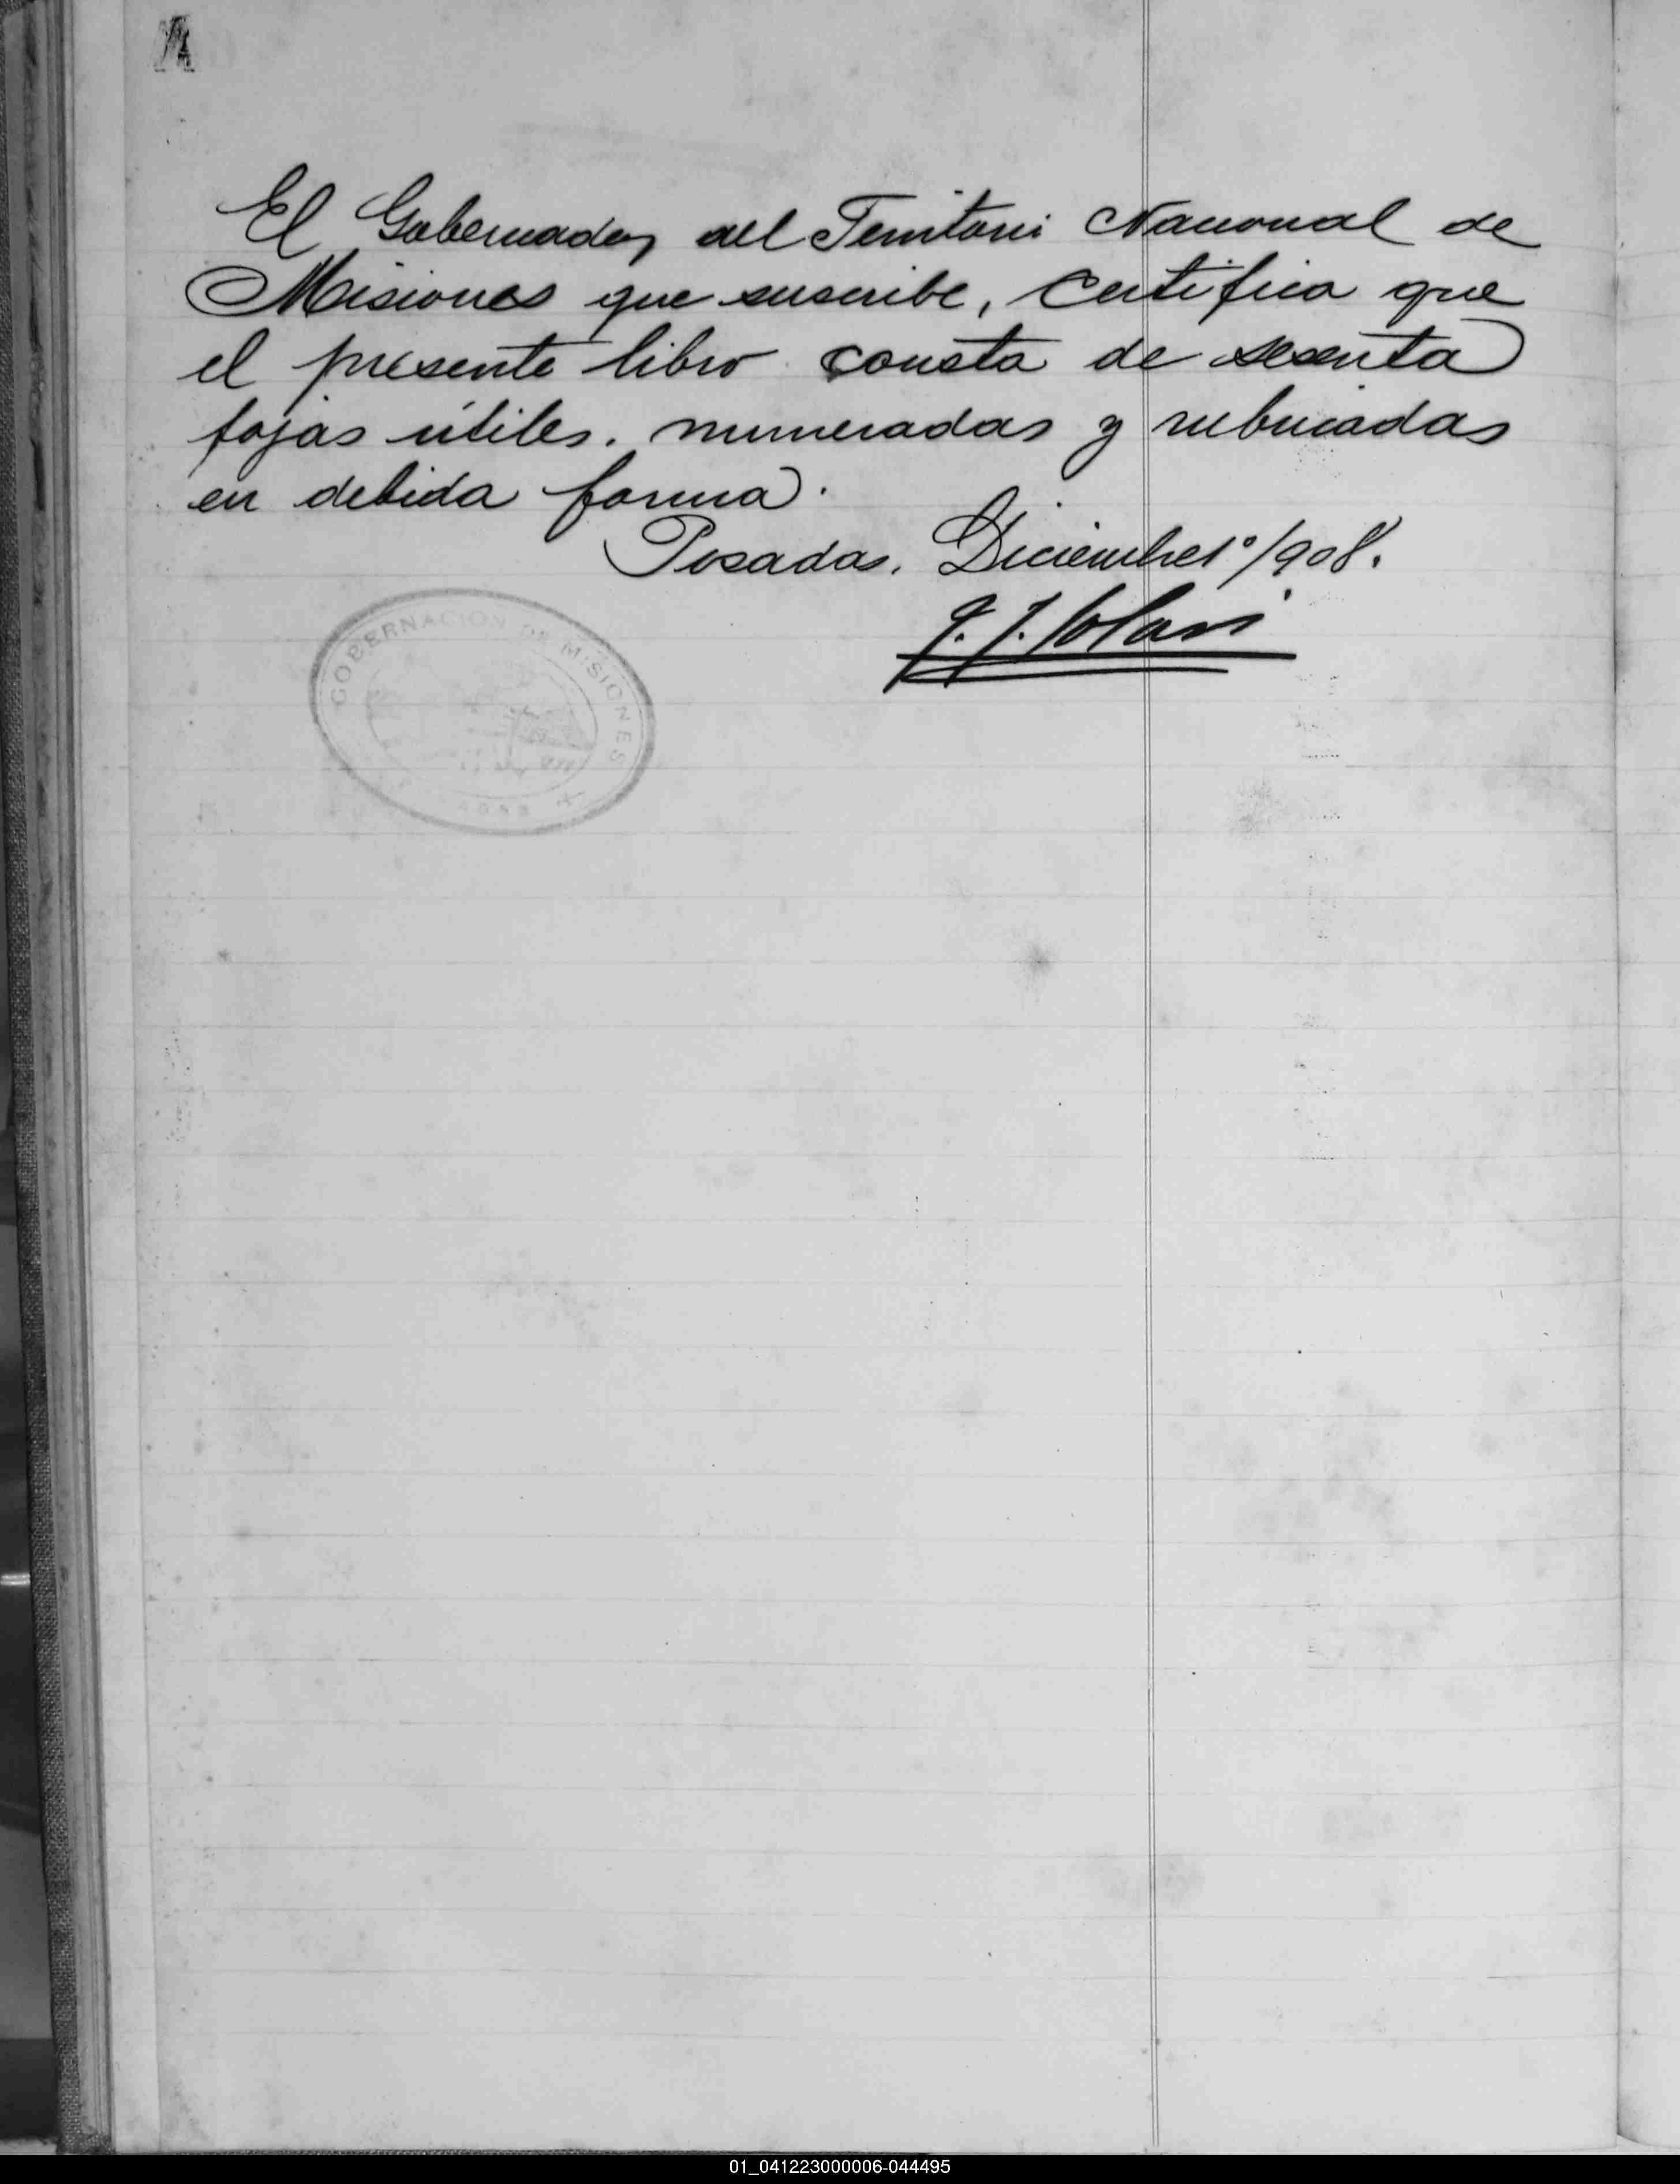 El Gobernador del Territorio Nacional de
Misiones que suscribe, Certifica que
el presente libro consta de sesenta
fojas útiles, numeradas y rubricadas
en debida forma.
Posadas, Diciembre 1º/908.
J. J. Solari
GOBERNACION DE MISIONES
01_041223000006-044495